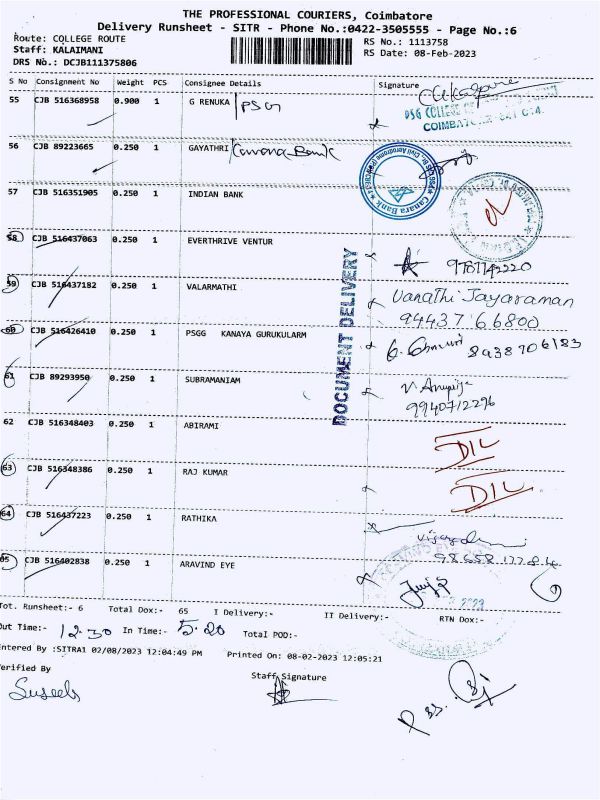 THE PROFESSIONAL COURIERS, Coimbatore
Delivery Runsheet - SITR - Phone No.:0422-3505555 - Page No.:6
Route: COLLEGE ROUTE
RS No.: 1113758
Staff: KALAIMANI
RS Date: 08-Feb-2023
DRS No.: DCJB111375806
S No Consignment No Weight PCS Consignee Details Signature
55 CJB 516368958 0.900 1 G RENUKA PSG
PSG COLLEGE OF
COIMBATORE
56 CJB 89223665 0.250 1 GAYATHRI Canara Bank
Canara Bank
57 CJB 516351905 0.250 1 INDIAN BANK
58 CJB 516437063 0.250 1 EVERTHRIVE VENTUR
DOCUMENT DELIVERY
59 CJB 516437182 0.250 1 VALARMATHI Vanathi Jayaraman
94437 66800
60 CJB 516426410 0.250 1 PSGG KANAYA GURUKULARM 8938706183
61 CJB 89293950 0.250 1 SUBRAMANIAM
9940712296
62 CJB 516348403 0.250 1 ABIRAMI DIL
63 CJB 516348386 0.250 1 RAJ KUMAR DIL
64 CJB 516437223 0.250 1 RATHIKA
65 CJB 516402838 0.250 1 ARAVIND EYE
Tot. Runsheet:- 6 Total Dox:- 65 I Delivery:- II Delivery:- RTN Dox:-
Out Time:- 12.30 In Time:- 5.20 Total POD:-
Entered By :SITRA1 02/08/2023 12:04:49 PM Printed On: 08-02-2023 12:05:21
Verified By Staff Signature